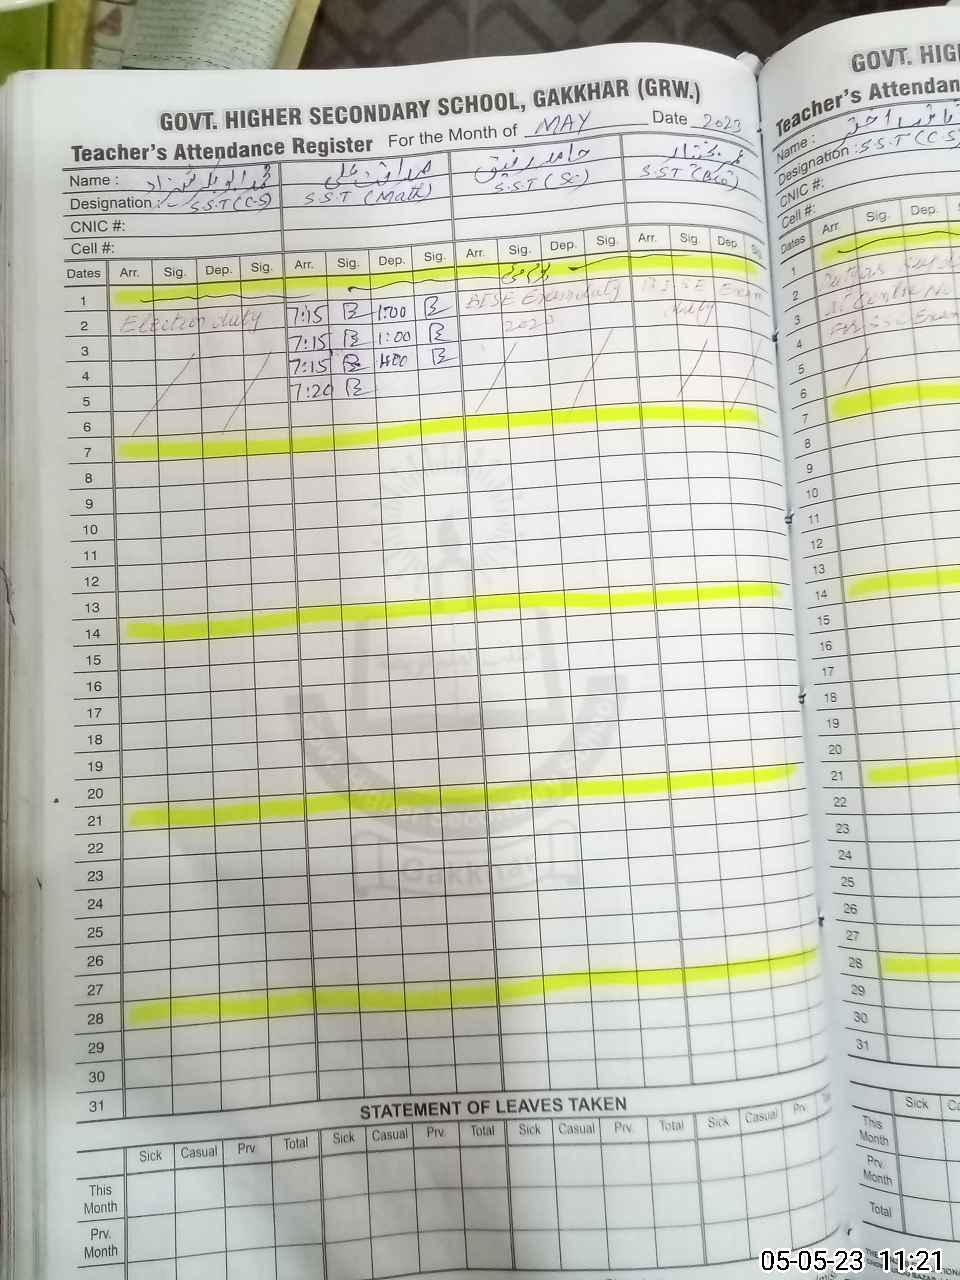 GOVT. HIGHER SECONDARY SCHOOL, GAKKHAR (GRW.)
Teacher's Attendance Register For the Month of MAY Date 2023
Name :
Designation : S.S.T (C.S) S.S.T (Math) S.S.T (Sc) S.S.T (Bio)
CNIC #:
Cell #:
Dates Arr. Sig. Dep. Sig. Arr. Sig. Dep. Sig. Arr. Sig. Dep. Sig. Arr. Sig. Dep. Sig.
1 یوم مئی
2 Election duty 7:15 1:00 BISE Exam duty BISE Exam
3 7:15 1:00 2023 duty
4 7:15 1:00
5 7:20
6
7
8
9
10
11
12
13
14
15
16
17
18
19
20
21
22
23
24
25
26
27
28
29
30
31
Gakkhar
STATEMENT OF LEAVES TAKEN
Sick Casual Prv. Total Sick Casual Prv. Total Sick Casual Prv. Total Sick Casual Prv.
This Month
Prv. Month
GOVT. HIG
Teacher's Attendan
Name :
Designation : S.S.T (C.S)
CNIC #:
Cell #:
Dates Arr. Sig. Dep.
1
2
3
4
5
6
7
8
9
10
11
12
13
14
15
16
17
18
19
20
21
22
23
24
25
26
27
28
29
30
31
Sick
This Month
Prv. Month
Total
05-05-23 11:21